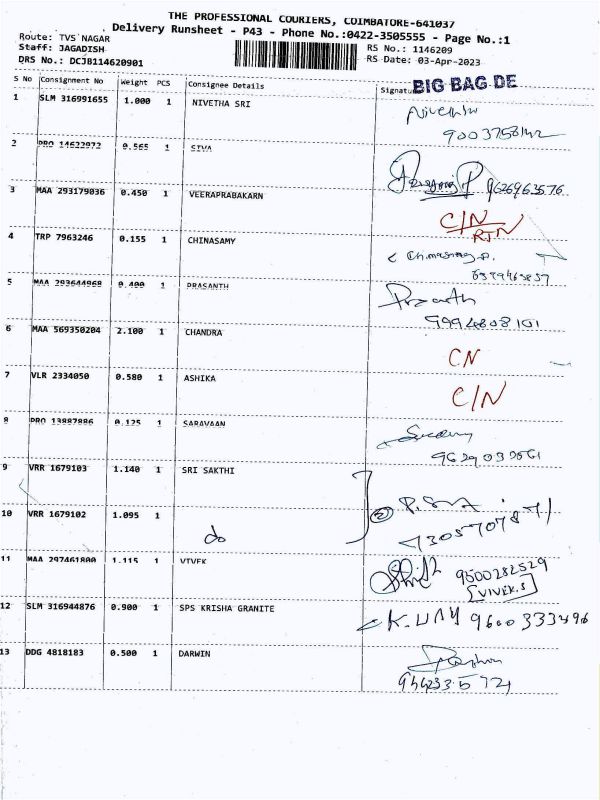 THE PROFESSIONAL COURIERS, COIMBATORE-641037
Delivery Runsheet - P43 - Phone No.:0422-3505555 - Page No.:1
Route: TVS NAGAR
Staff: JAGADISH RS No.: 1146209
DRS No.: DCJB114620901 RS Date: 03-Apr-2023
S No Consignment No Weight PCS Consignee Details Signature BIG BAG DE
1 SLM 316991655 1.000 1 NIVETHA SRI
2 PRO 14622972 0.565 1 SIVA
9626963576
3 MAA 293179036 0.450 1 VEERAPRABAKARN C/N
RTN
4 TRP 7963246 0.155 1 CHINASAMY
5 MAA 293644968 0.400 1 PRASANTH
9994808101
6 MAA 569350204 2.100 1 CHANDRA CN
7 VLR 2334050 0.580 1 ASHIKA C/N
8 PRO 13887886 0.125 1 SARAVAAN
9 VRR 1679103 1.140 1 SRI SAKTHI
10 VRR 1679102 1.095 1 do
11 MAA 297461800 1.115 1 VIVEK 9500282529
[VIVEK.S]
12 SLM 316944876 0.900 1 SPS KRISHA GRANITE 9600333496
13 DDG 4818183 0.500 1 DARWIN